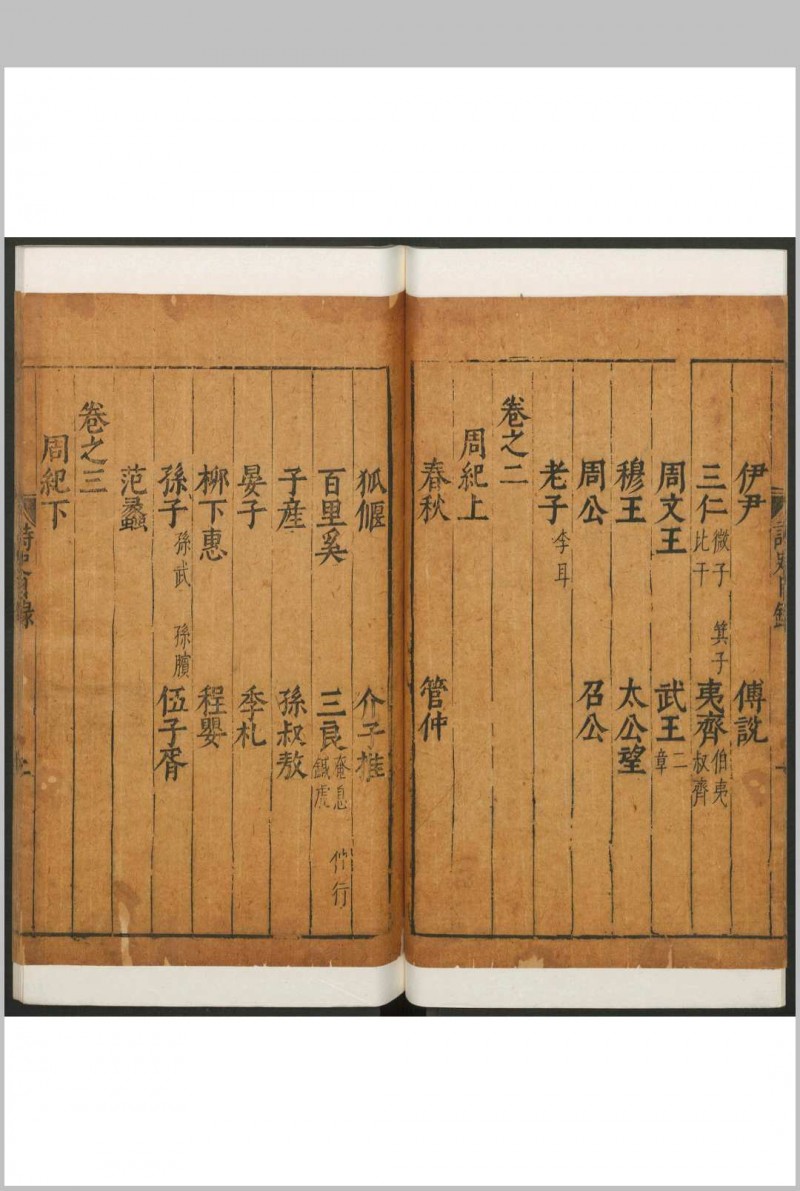 伊尹　傅說
三仁微子　箕子比干　夷齊伯夷叔齊
周文王　武王二章
穆王　太公望
周公　召公
老子李耳
卷之二
周紀上
春秋　管仲
狐偃　介子推
百里奚　三良奄息　仲行鍼虎
子産　孫叔敖
晏子　季札
柳下惠　程嬰
孫子孫武　孫臏　伍子胥
范蠡
卷之三
周紀下
詩史目錄